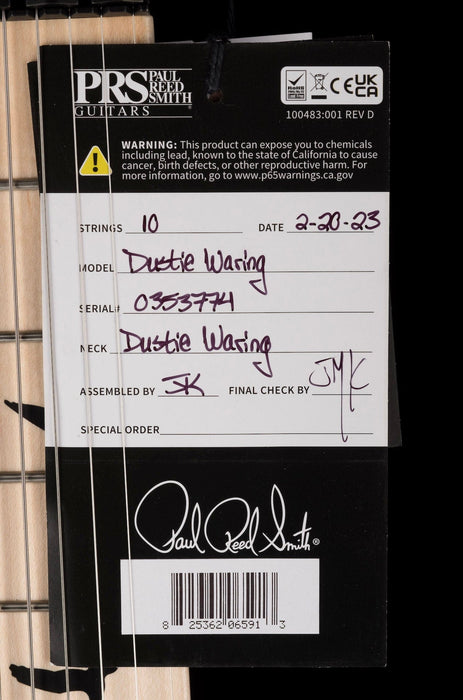 PRS PAUL REED SMITH
GUITARS
RoHS CE UK CA
100483:001 REV D
WARNING: This product can expose you to chemicals
including lead, known to the state of California to cause
cancer, birth defects, or other reproductive harm. For
more information, go to www.p65warnings.ca.gov
STRINGS 10 DATE 2-20-23
MODEL Dustie Waring
SERIAL# 0353774
NECK Dustie Waring
ASSEMBLED BY JK FINAL CHECK BY JMK
SPECIAL ORDER
Paul Reed Smith®
8 25362 06591 3